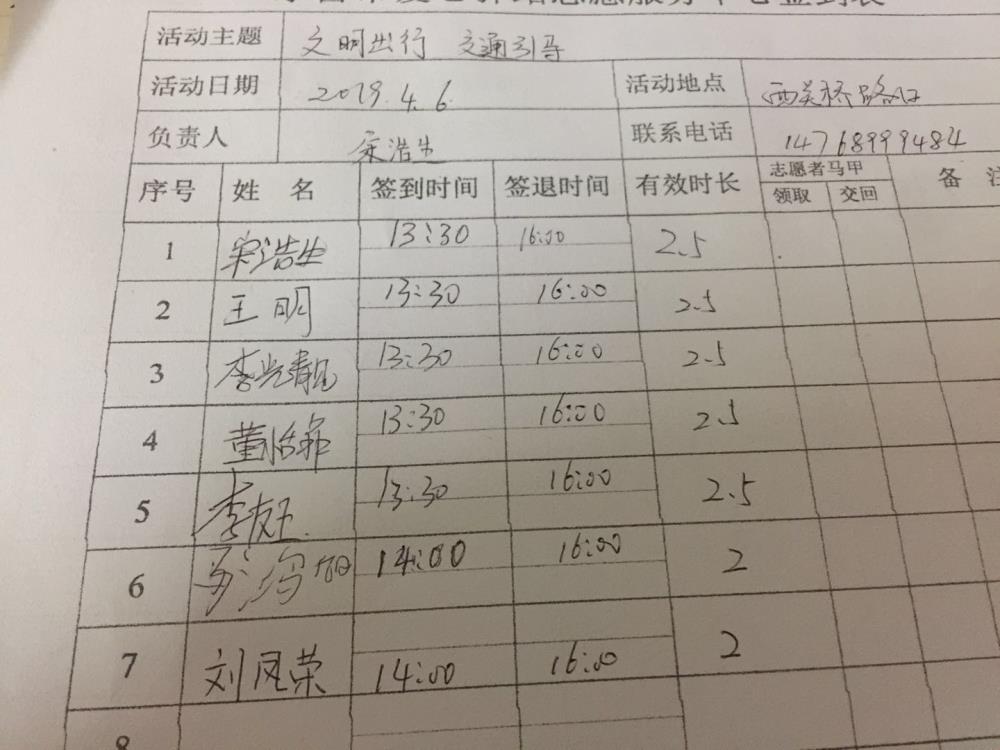 活动主题 文明出行 交通引导
活动日期 2019.4.6. 活动地点 西关桥路口
负责人 宋浩生 联系电话 14768999484
序号 姓 名 签到时间 签退时间 有效时长 志愿者马甲 备 注
领取 交回
1 宋浩生 13:30 16:00 2.5
2 王明 13:30 16:00 2.5
3 李光靓 13:30 16:00 2.5
4 董怡菲 13:30 16:00 2.5
5 李友玉 13:30 16:00 2.5
6 14:00 16:00 2
7 刘凤荣 14:00 16:00 2
8